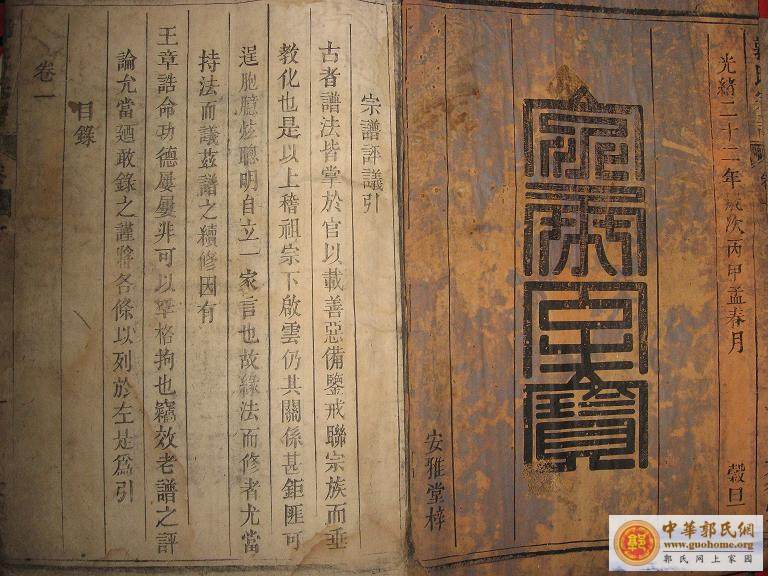 光緒二十二年歲次丙申孟春月 穀旦
安雅堂梓
宗譜評議引
古者譜法皆掌於官以載善惡備鑒戒聯宗族而垂
教化也是以上稽祖宗下啟雲仍其關係甚鉅匪可
逞胞臆炫聰明自立一家言也故緣法而修者尤當
持法而議茲譜之續修因有
王章誥命功德屢屢非可以罕格拘也竊效老譜之評
論允當廼敢錄之謹將各條以列於左是爲引
目錄
卷一
中華郭氏網
www.guohome.org
郭氏网上家园